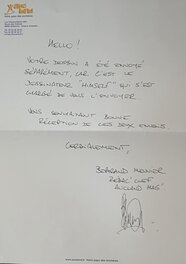 HELLO !
VOTRE DESSIN A ÉTÉ ENVOYÉ
SÉPARÉMENT, CAR C'EST LE
DESSINATEUR "HIMSELF" QUI S'EST
CHARGÉ DE VOUS L'ENVOYER
VOUS SOUHAITANT BONNE
RÉCEPTION DE CES DEUX ENVOIS.
CORDIALEMENT,
BERTRAND
RÉDAC' CHEF
MAG'